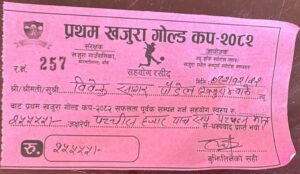 प्रथम खजुरा गोल्ड कप-२०८२
संरक्षक
आयोजक
खजुरा गाउँपालिका
सहयोग रसिद
र.नं. 257
श्री/श्रीमती/सुश्री विवेक सागर पौडेल
बाट प्रथम खजुरा गोल्ड कप-२०८२ सफलता पूर्वक सम्पन्न गर्न सहयोग स्वरुप रु.
२५५५५।- अक्षरेपी पच्चीस हजार पाँच सय पचपन्न मात्र
धन्यवाद प्राप्त भयो ।
रु. २५५५५।-
बुझिलिनेको सही